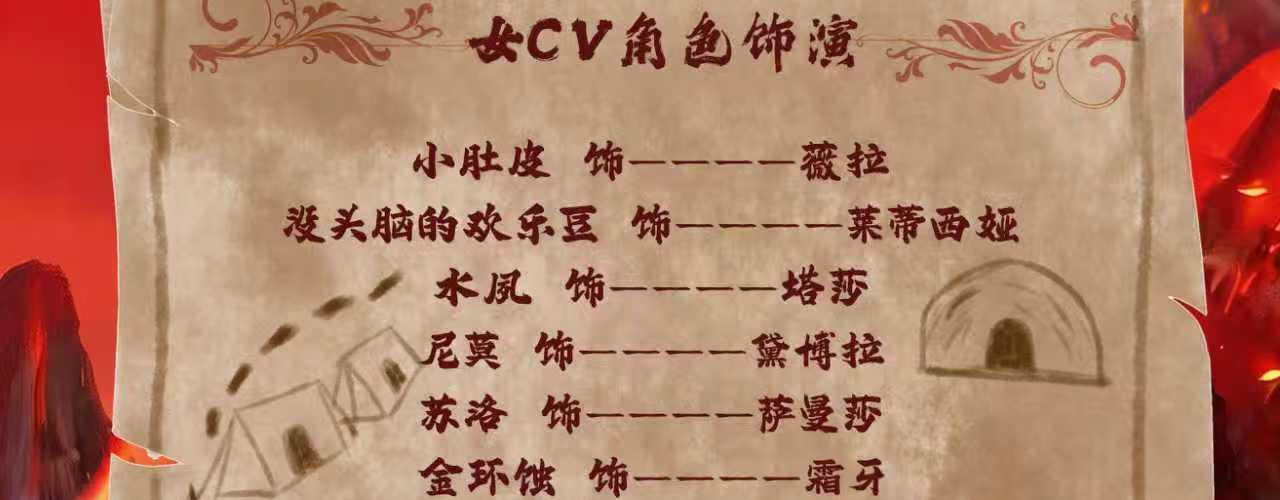 女CV角色饰演
小肚皮 饰————薇拉
没头脑的欢乐豆 饰————莱蒂西娅
水夙 饰————塔莎
尼莫 饰————黛博拉
苏洛 饰————萨曼莎
金环蚀 饰————霜牙